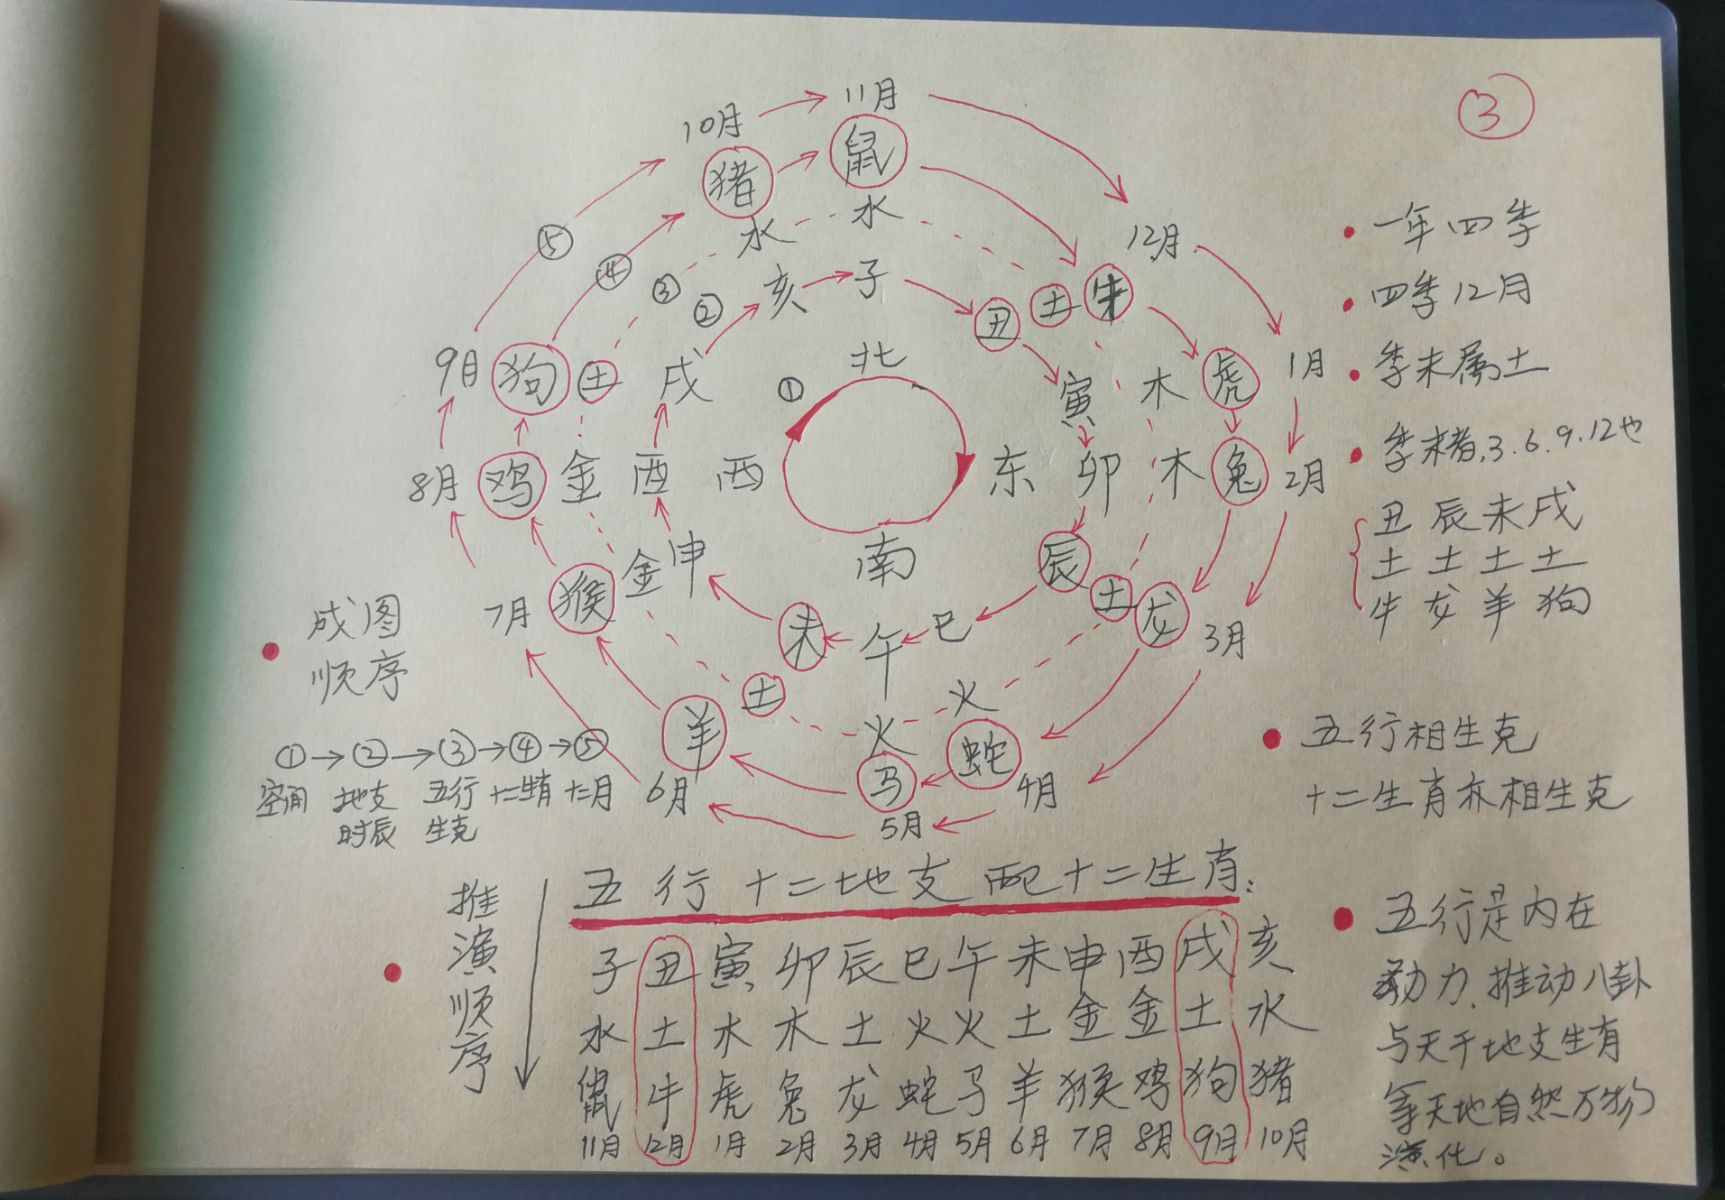 ③
10月 11月
猪 鼠 12月
水 水
⑤ ④ ③ ② 亥 子 丑 土 牛
9月 狗 土 戌 ① 北 寅 木 虎 1月
8月 鸡 金 酉 西 东 卯 木 兔 2月
7月 猴 金 申 南 辰 土 龙 3月
未 午 巳
羊 土 火 火
6月 马 蛇 4月
5月
一年四季
四季12月
季末属土
季末者,3.6.9.12也
丑 辰 未 戌
土 土 土 土
牛 龙 羊 狗
成图
顺序
①→②→③→④→⑤
空间 地支 五行 十二生肖 十二月
时辰 生克
五行相生克
十二生肖亦相生克
五行十二地支配十二生肖:
推演顺序
子 丑 寅 卯 辰 巳 午 未 申 酉 戌 亥
水 土 木 木 土 火 火 土 金 金 土 水
鼠 牛 虎 兔 龙 蛇 马 羊 猴 鸡 狗 猪
11月 12月 1月 2月 3月 4月 5月 6月 7月 8月 9月 10月
五行是内在
动力,推动八卦
与天干地支生肖
等天地自然万物
演化。